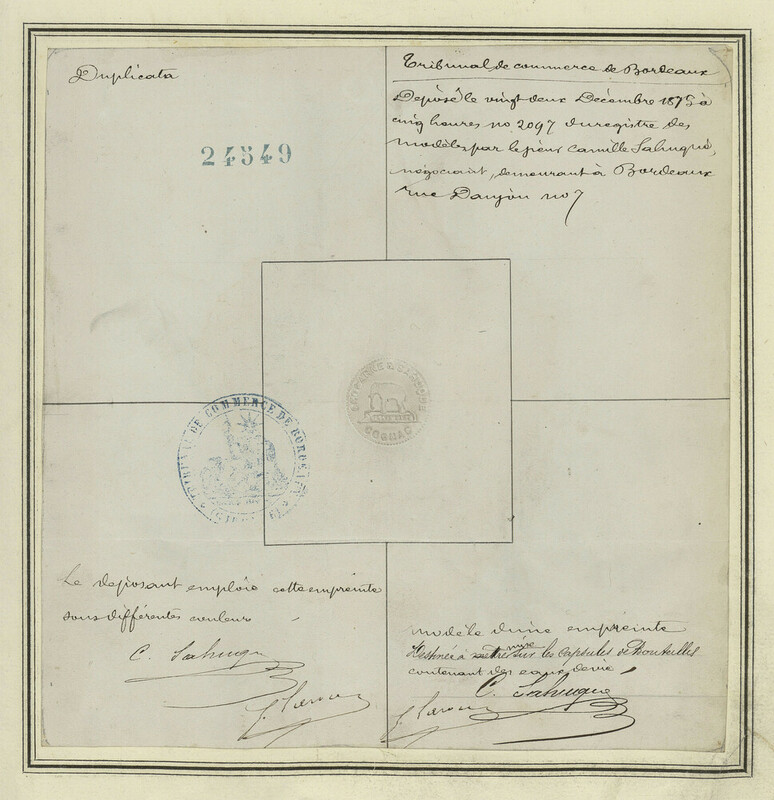 Duplicata
24549
Tribunal de commerce de Bordeaux
Déposé le vingt deux Décembre 1875 à
cinq heures no 2097 du registre des
modèles par le sieur Camille Sahuqué,
négociant, demeurant à Bordeaux
rue Daujon no 7
COGNAC
TRIBUNAL DE COMMERCE DE BORDEAUX
Le déposant emploie cette empreinte
sous différentes couleurs
C. Sahuqué
modèle d'une empreinte
destinée à être mise sur les capsules de Bouteilles
contenant des eaux de vie
C. Sahuqué